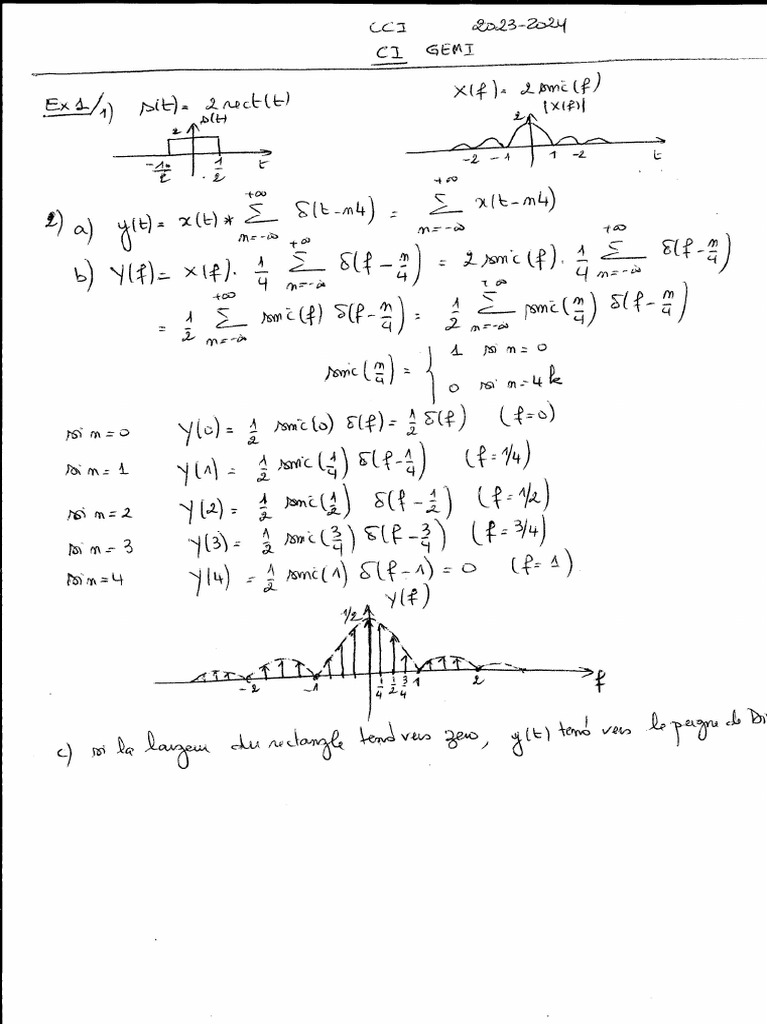 CCI 2023-2024
CI GEMI
Ex 1/ 1) s(t) = 2 rect(t) X(f) = 2 sinc(f)
s(t) |X(f)|
2 2
-1/2 1/2 t -2 -1 1 -2 t
2) a) y(t) = x(t) * ∑_{n=-∞}^{+∞} δ(t-n4) = ∑_{n=-∞}^{+∞} x(t-n4)
b) Y(f) = X(f) · 1/4 ∑_{n=-∞}^{+∞} δ(f - n/4) = 2 sinc(f) · 1/4 ∑_{n=-∞}^{+∞} δ(f - n/4)
= 1/2 ∑_{n=-∞}^{+∞} sinc(f) δ(f - n/4) = 1/2 ∑_{n=-∞}^{+∞} sinc(n/4) δ(f - n/4)
sinc(n/4) = { 1 si n = 0
0 si n = 4k
si n = 0 Y(0) = 1/2 sinc(0) δ(f) = 1/2 δ(f) (f=0)
si n = 1 Y(1) = 1/2 sinc(1/4) δ(f - 1/4) (f = 1/4)
si n = 2 Y(2) = 1/2 sinc(1/2) δ(f - 1/2) (f = 1/2)
si n = 3 Y(3) = 1/2 sinc(3/4) δ(f - 3/4) (f = 3/4)
si n = 4 Y(4) = 1/2 sinc(1) δ(f - 1) = 0 (f = 1)
1/2 Y(f)
-2 -1 1/4 1/2 3/4 1 2 f
c) si la largeur du rectangle tend vers zero, y(t) tend vers le peigne de Di